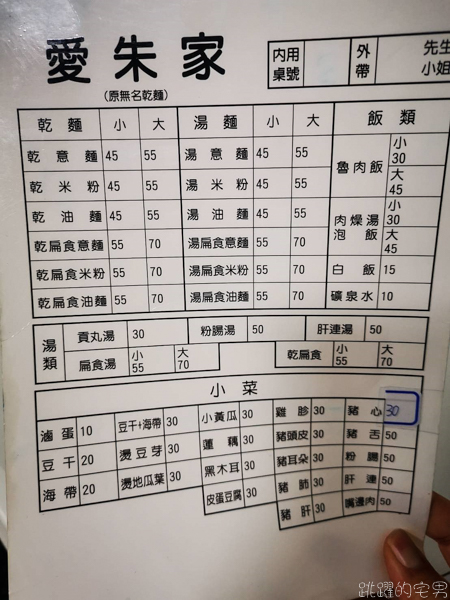 愛朱家
(原無名乾麵)
內用桌號 外帶 先生 小姐
乾麵 小 大 湯麵 小 大 飯類
乾意麵 45 55 湯意麵 45 55 魯肉飯 小30 大45
乾米粉 45 55 湯米粉 45 55
乾油麵 45 55 湯油麵 45 55 肉燥湯泡飯 小30 大45
乾扁食意麵 55 70 湯扁食意麵 55 70
乾扁食米粉 55 70 湯扁食米粉 55 70 白飯 15
乾扁食油麵 55 70 湯扁食油麵 55 70 礦泉水 10
湯類 貢丸湯 30 粉腸湯 50 肝連湯 50
扁食湯 小55 大70 乾扁食 小55 大70
小菜
滷蛋 10 豆干+海帶 30 小黃瓜 30 雞胗 30 豬心 30
豆干 20 燙豆芽 30 蓮藕 30 豬頭皮 30 豬舌 50
海帶 20 燙地瓜葉 30 黑木耳 30 豬耳朵 30 粉腸 50
皮蛋豆腐 30 豬肺 30 肝連 50
豬肝 30 嘴邊肉 50
跳躍的宅男